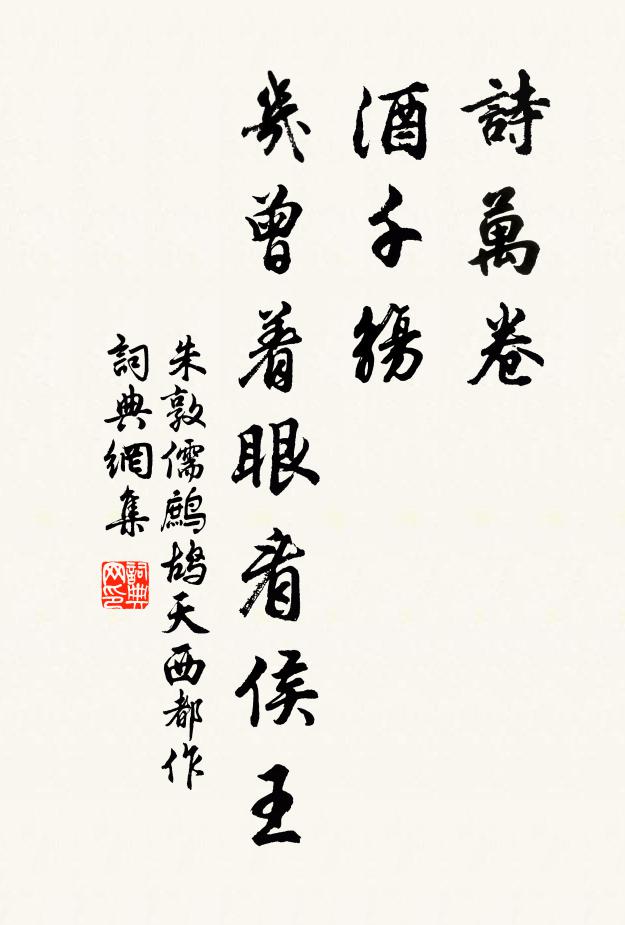 詩萬卷
酒千觴
幾曾着眼看侯王
朱敦儒鷓鴣天西都作
詞典網集
詞典网印